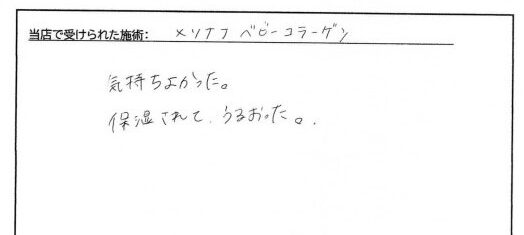 当店で受けられた施術: メソナJ ベビーコラーゲン
気持ちよかった。
保湿されて、うるおった。.